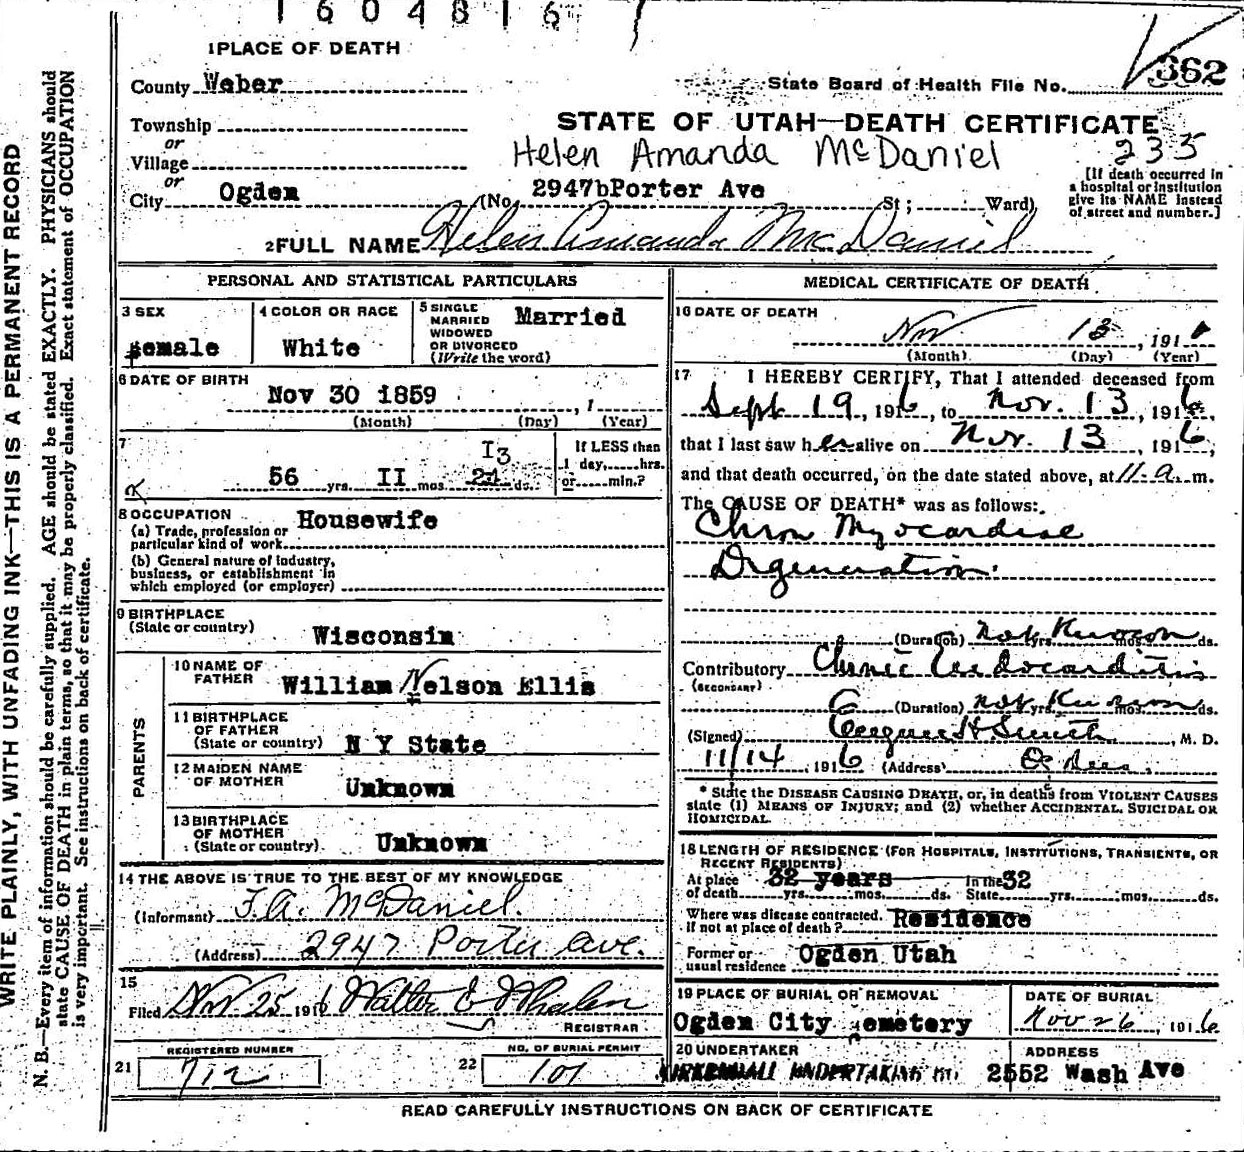 1604816
1 PLACE OF DEATH
County Weber
State Board of Health File No. 362
Township
or
Village
or
City Ogden
STATE OF UTAH—DEATH CERTIFICATE
Helen Amanda McDaniel
233
[If death occurred in
a hospital or institution
give its NAME instead
of street and number.]
(No. 2947b Porter Ave St; Ward)
2 FULL NAME Helen Amanda McDaniel
PERSONAL AND STATISTICAL PARTICULARS
3 SEX
Female
4 COLOR OR RACE
White
5 SINGLE
MARRIED
WIDOWED
OR DIVORCED
(Write the word)
Married
6 DATE OF BIRTH
Nov 30 1859 , 1
(Month) (Day) (Year)
7
56 yrs. II mos. 21 ds.
I3
If LESS than
1 day, hrs.
or min.?
8 OCCUPATION
Housewife
(a) Trade, profession or
particular kind of work
(b) General nature of industry,
business, or establishment in
which employed (or employer)
9 BIRTHPLACE
(State or country)
Wisconsin
PARENTS
10 NAME OF
FATHER
William Nelson Ellis
11 BIRTHPLACE
OF FATHER
(State or country)
N Y State
12 MAIDEN NAME
OF MOTHER
Unknown
13 BIRTHPLACE
OF MOTHER
(State or country)
Unknown
14 THE ABOVE IS TRUE TO THE BEST OF MY KNOWLEDGE
(Informant) F. A. McDaniel
(Address) 2947 Porter Ave.
15
Filed Nov 25 1916 Walter E Whalen
REGISTRAR
21
REGISTERED NUMBER
712
22
NO. OF BURIAL PERMIT
101
MEDICAL CERTIFICATE OF DEATH
16 DATE OF DEATH
Nov 13, 191
(Month) (Day) (Year)
17 I HEREBY CERTIFY, That I attended deceased from
Sept 19, 1916, to Nov. 13, 1916,
that I last saw her alive on Nov. 13, 1916,
and that death occurred, on the date stated above, at 11 a. m.
The CAUSE OF DEATH* was as follows:
Chron Myocardial
Degeneration.
(Duration) not known yrs. mos. ds.
Contributory Chronic Endocarditis
(SECONDARY)
(Duration) not known yrs. mos. ds.
(Signed) H Smith, M. D.
11/14, 1916 (Address) Ogden.
* State the DISEASE CAUSING DEATH, or, in deaths from VIOLENT CAUSES
state (1) MEANS OF INJURY; and (2) whether ACCIDENTAL, SUICIDAL OR
HOMICIDAL.
18 LENGTH OF RESIDENCE (FOR HOSPITALS, INSTITUTIONS, TRANSIENTS, OR
RECENT RESIDENTS)
At place
of death 32 years yrs. mos. ds.
In the
State 32 yrs. mos. ds.
Where was disease contracted,
if not at place of death? Residence
Former or
usual residence Ogden Utah
19 PLACE OF BURIAL OR REMOVAL
Ogden City Cemetery
DATE OF BURIAL
Nov 26, 1916
20 UNDERTAKER
KIRKENDALL UNDERTAKING CO.
ADDRESS
2552 Wash Ave
READ CAREFULLY INSTRUCTIONS ON BACK OF CERTIFICATE
WRITE PLAINLY, WITH UNFADING INK—THIS IS A PERMANENT RECORD
N. B.—Every item of information should be carefully supplied. AGE should be stated EXACTLY. PHYSICIANS should
state CAUSE OF DEATH in plain terms, so that it may be properly classified. Exact statement of OCCUPATION
is very important. See instructions on back of certificate.